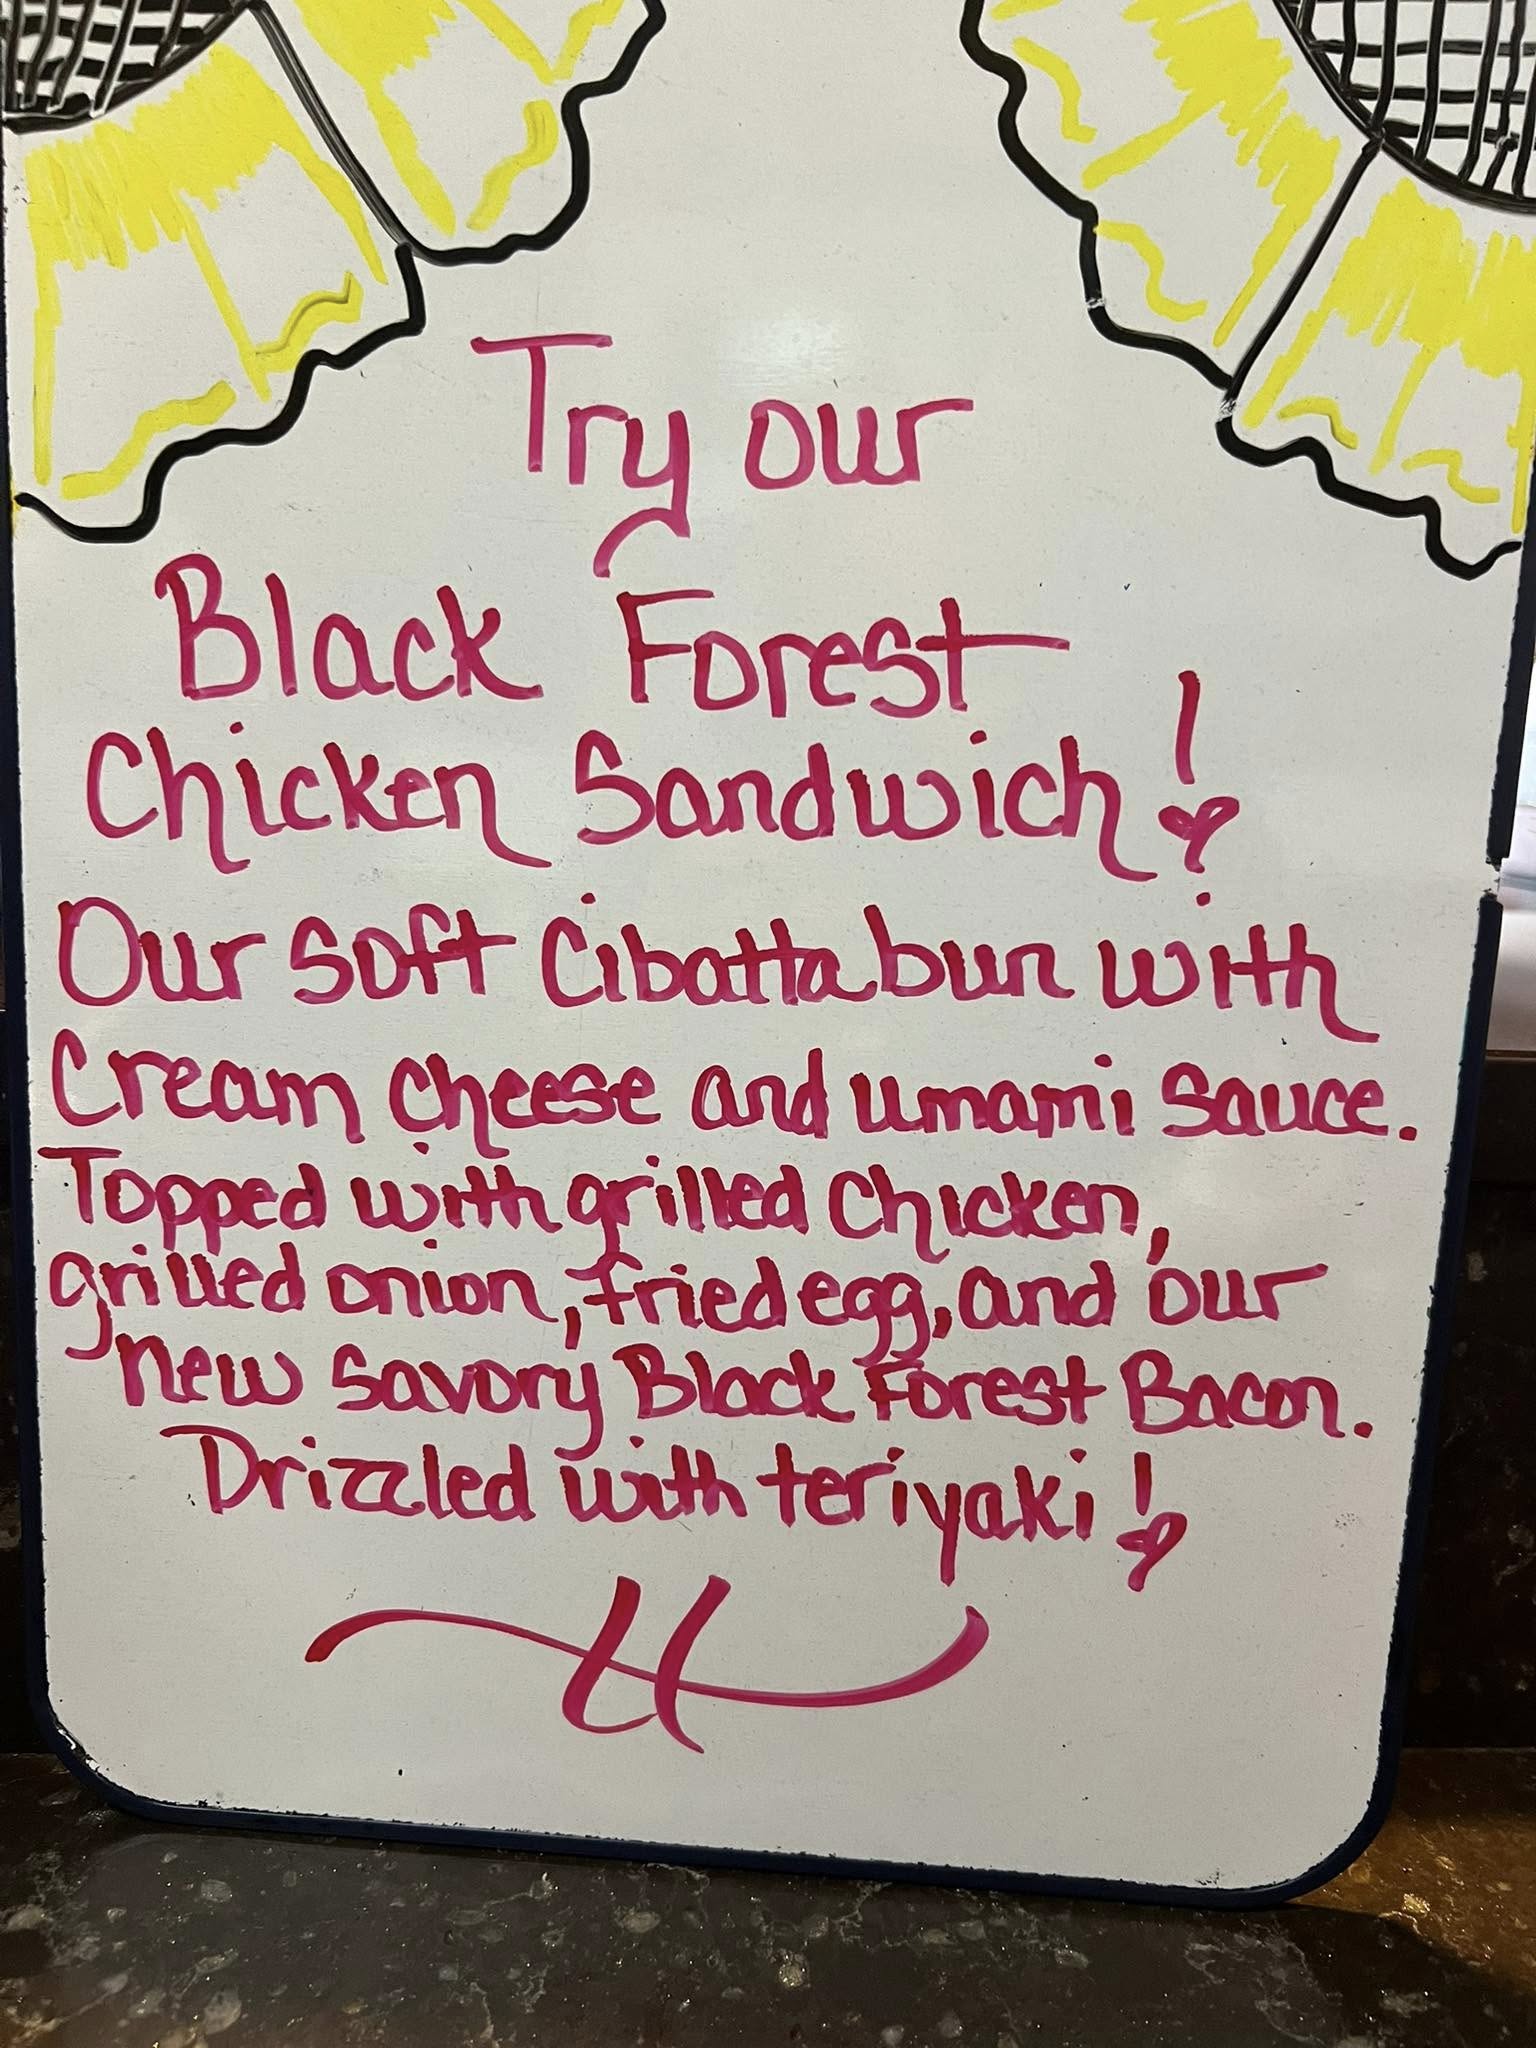 Try our
Black Forest
Chicken Sandwich!
Our soft Cibatta bun with
Cream cheese and umami sauce.
Topped with grilled Chicken,
grilled onion, fried egg, and our
new savory Black Forest Bacon.
Drizzled with teriyaki!